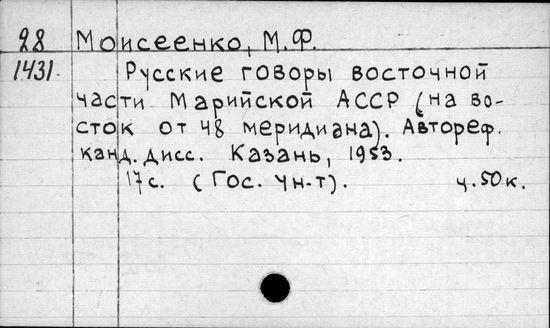 28 Моисеенко, М.Ф.
1431. Русские говоры восточной
части Марийской АССР (на во-
сток от 48 меридиана). Автореф.
канд. дисс. Казань, 1953.
17 с. (Гос. Ун-т). ц. 50 к.